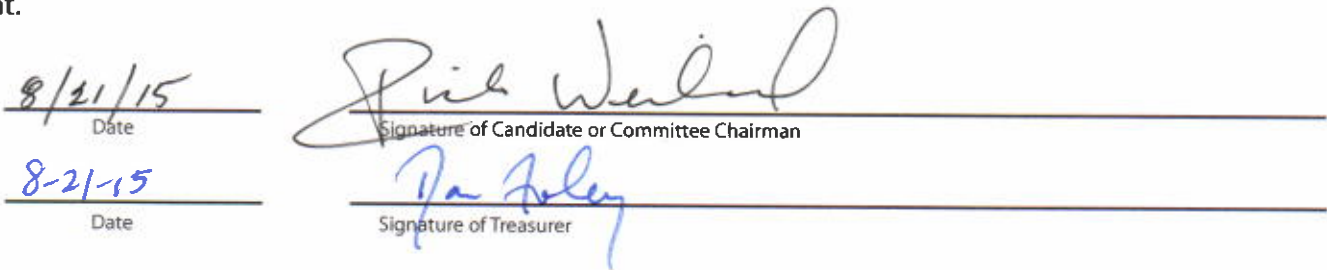 nt.
8/21/15 Rick Weiland
Date Signature of Candidate or Committee Chairman
8-21-15 Dan Foley
Date Signature of Treasurer